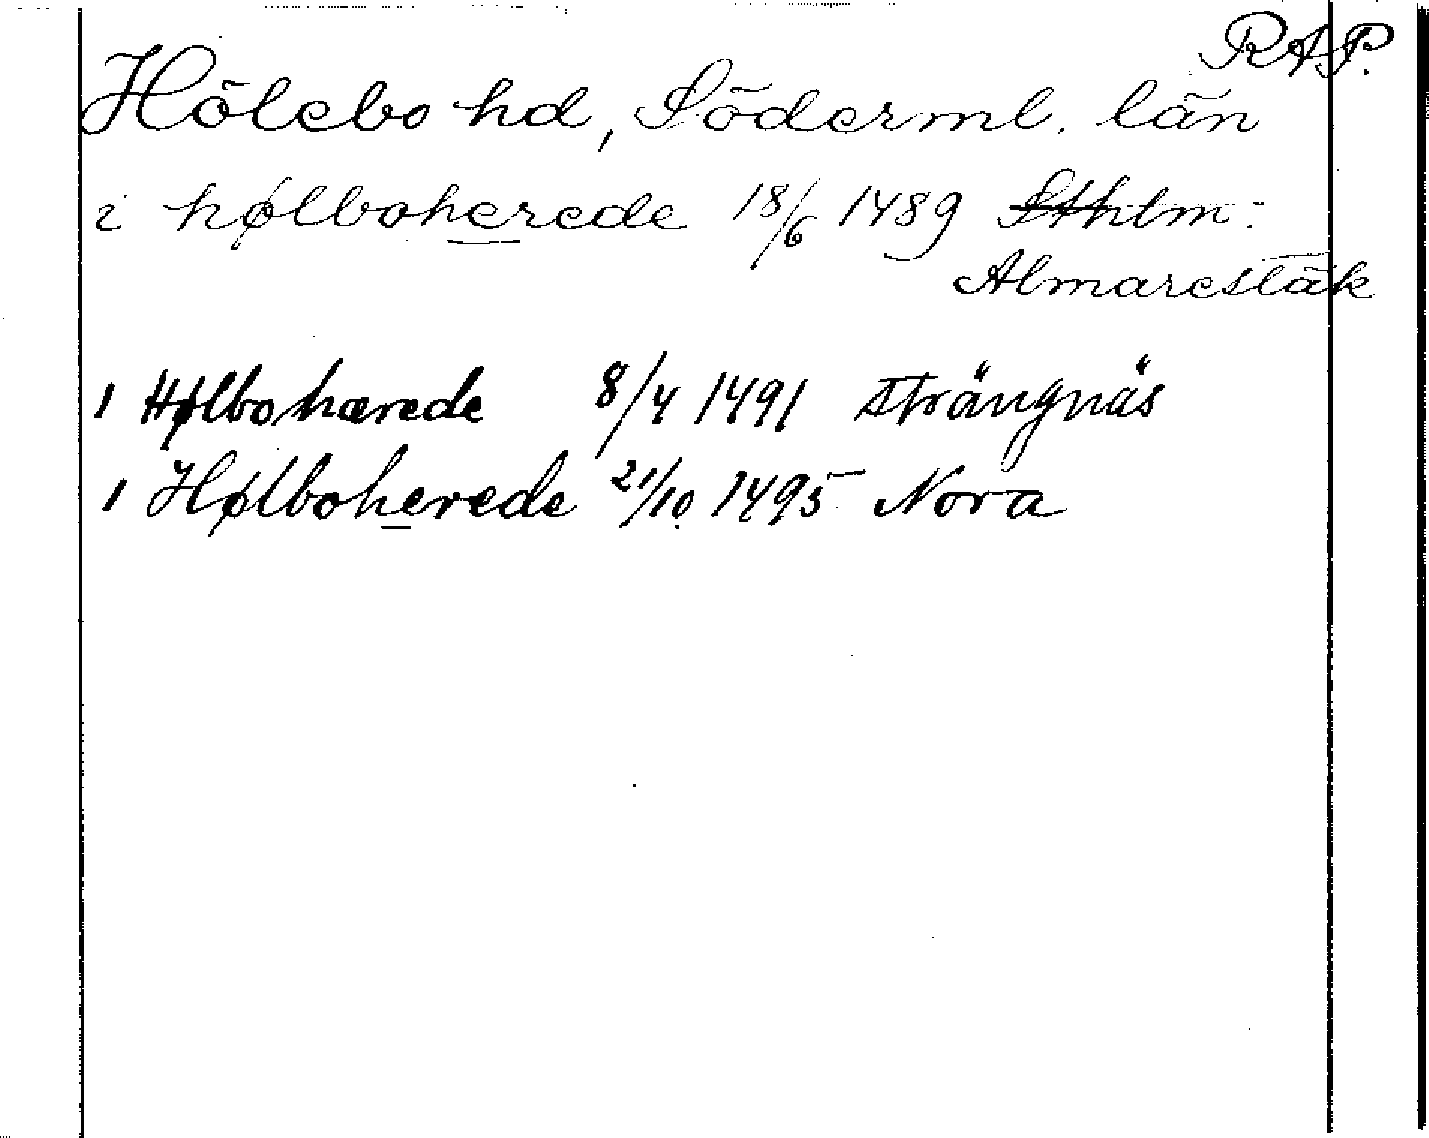 RAP.
Hölebo hd, Söderml. län
i hølboherede 18/6 1489 Sthlm:
Almarestäk
1 Hølbohærede 8/4 1491 Strängnäs
1 Hølboherede 21/10 1495 Nora